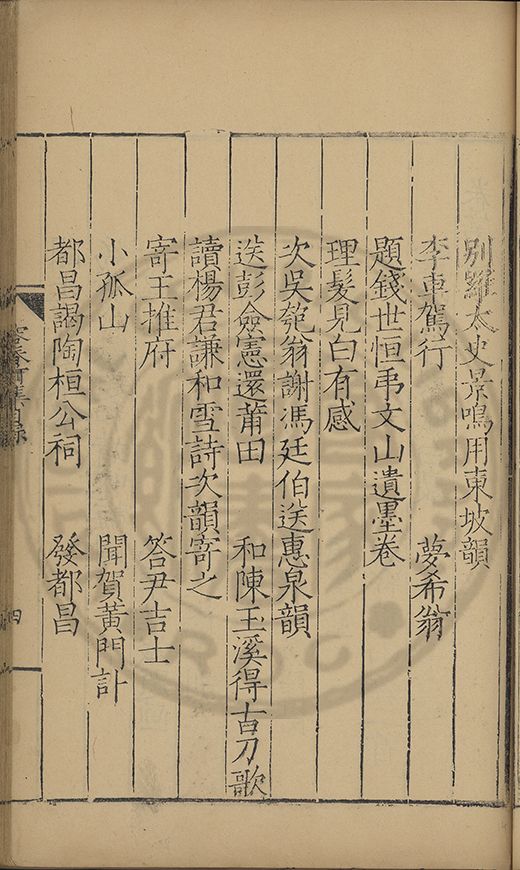 別羅太史景鳴用東坡韻
李車駕行 夢希翁
題錢世恒弔文山遺墨卷
理髮見白有感
次吳匏翁謝馮廷伯送惠泉韻
送彭僉憲還莆田 和陳玉溪得古刀歌
讀楊君謙和雪詩次韻寄之
寄王推府 答尹吉士
小孤山 聞賀黃門訃
都昌謁陶桓公祠 發都昌
容春 集目錄 四